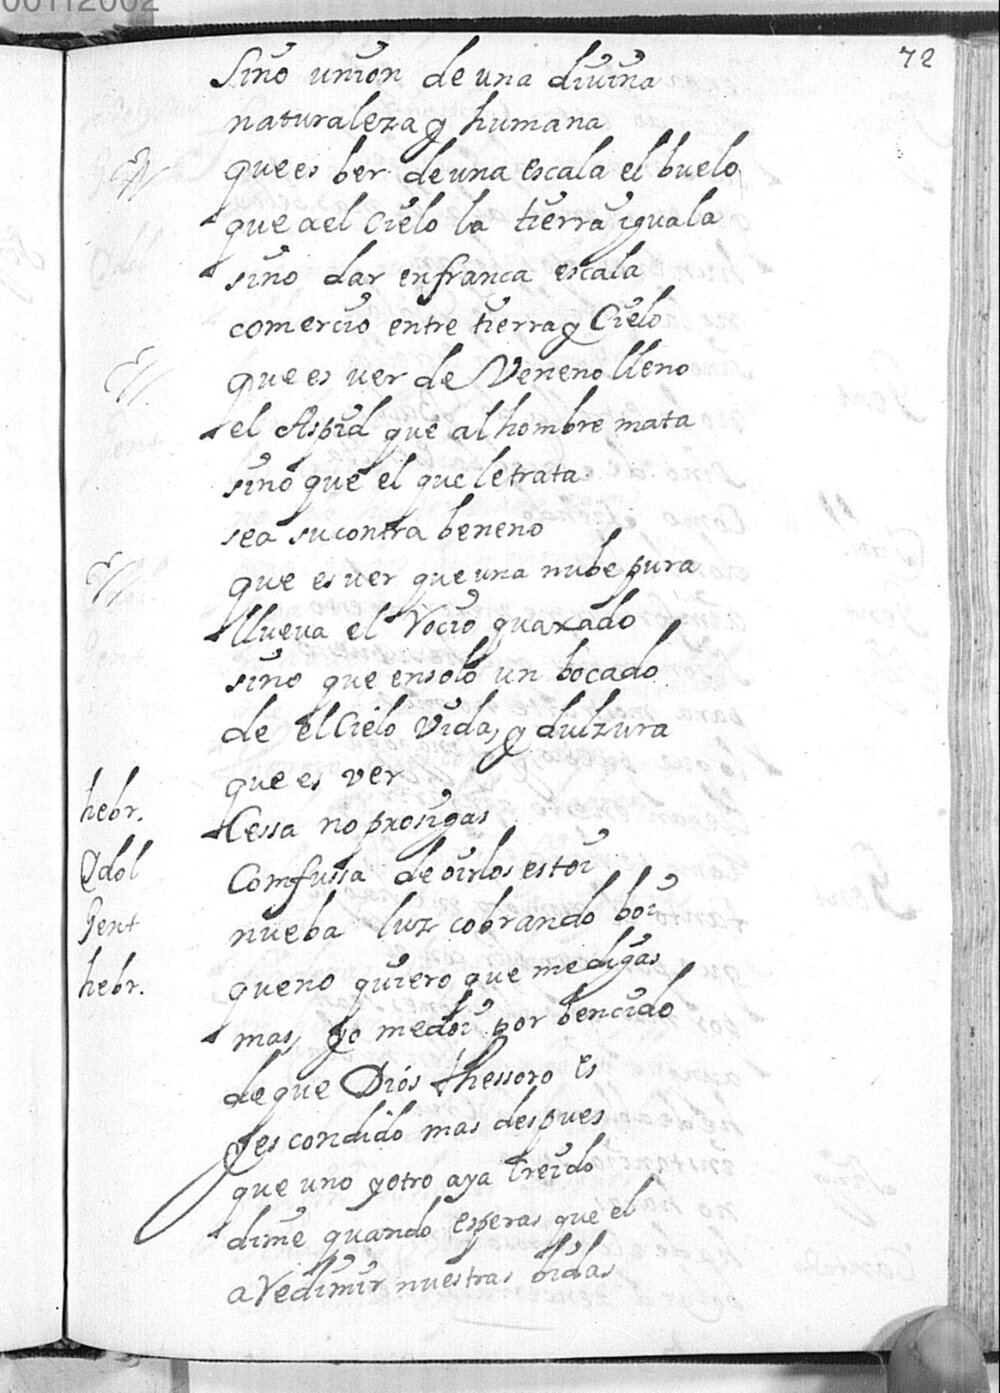 00112002
72
Sino union de una divina
naturaleza y humana
que es ber de una escala el buelo
que a el Cielo la tierra iguala
sino dar en franca escala
comercio entre tierra y Cielo
que es ver de Veneno lleno
el Aspid que al hombre mata
sino que el que le trata
sea su contra beneno
que es ver que una nube pura
llueva el Rocio quaxado
sino que en solo un bocado
de el Cielo Vida, y dulzura
que es ver
hebr. Cessa no prosigas
Ydol Comfussa de oirlos estoi
Gent nueba luz cobrando boi
hebr. que no quiero que me digas
mas, yo me doi por bencido
de que Diós thessoro es
escondido mas despues
que uno y otro aya Creido
dime quando esperas que el
a Redimir nuestras bidas